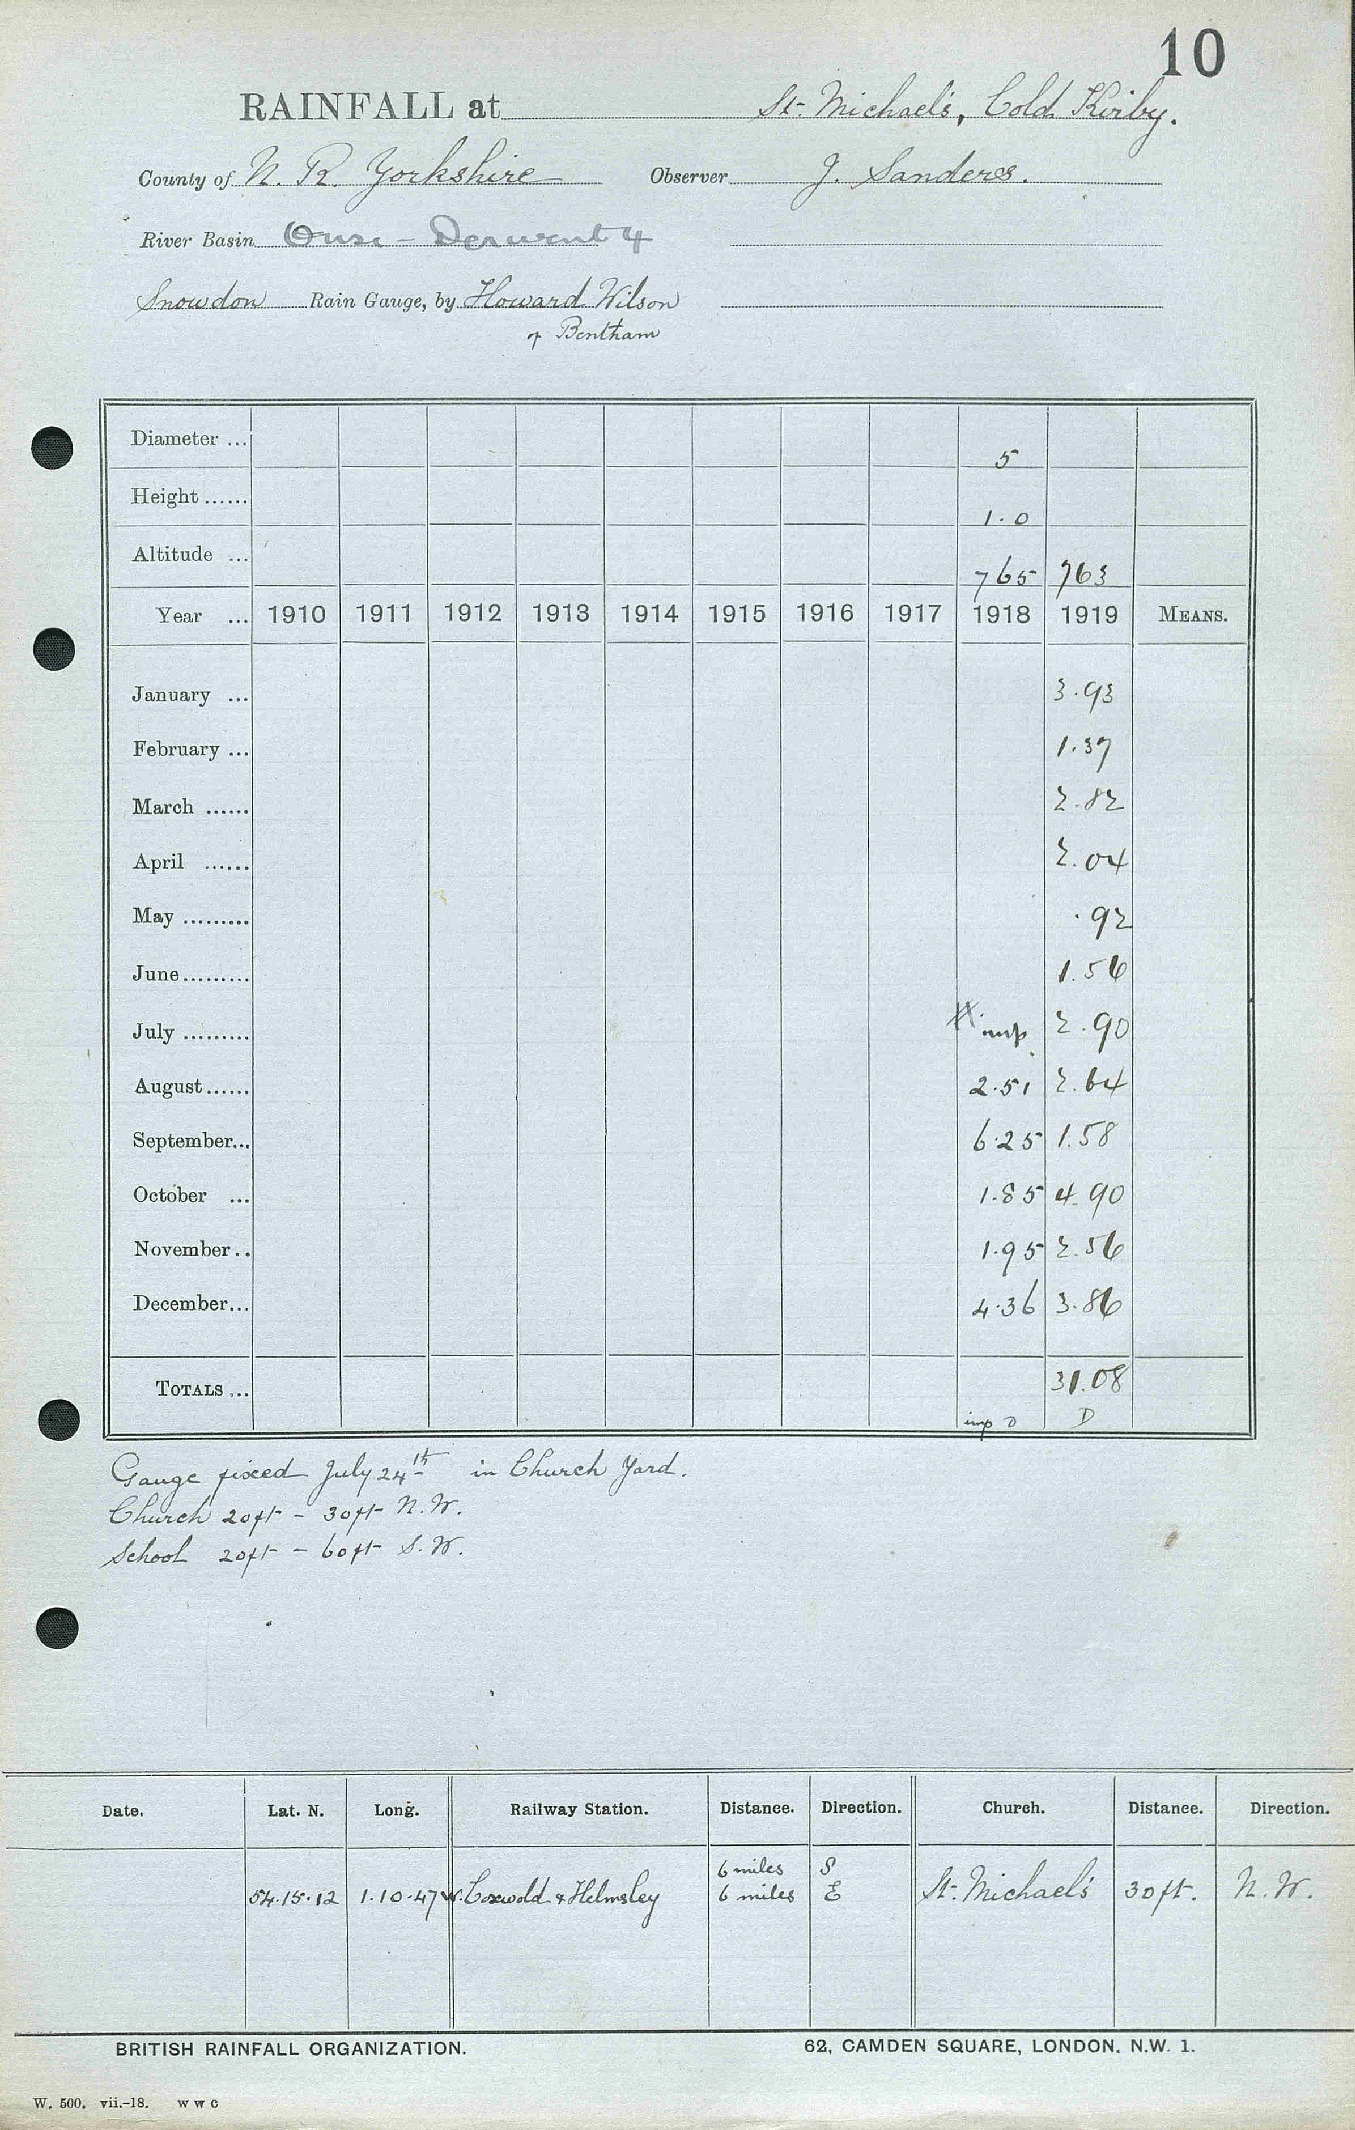 10
RAINFALL at St. Michael's, Cold Kirby.
County of N. R. Yorkshire Observer J. Sanders.
River Basin Ouse - Derwent 4
Snowdon Rain Gauge, by Howard Wilson
of Bentham
Diameter ... 5
Height ...... 1.0
Altitude ... 765 763
Year ... 1910 1911 1912 1913 1914 1915 1916 1917 1918 1919 MEANS.
January ... 3.93
February ... 1.37
March ...... 2.82
April ...... 2.04
May ......... .92
June......... 1.56
July ......... imp. 2.90
August ...... 2.51 2.64
September... 6.25 1.58
October ... 1.85 4.90
November .. 1.95 2.56
December... 4.36 3.86
TOTALS ... 31.08
imp D D
Gauge fixed July 24th in Church Yard.
Church 20ft - 30ft N.W.
School 20ft - 60ft S.W.
Date. Lat. N. Long. Railway Station. Distance. Direction. Church. Distance. Direction.
6 miles S
54.15.12 1.10.47 W. Coxwold & Helmsley 6 miles E St. Michael's 30ft. N.W.
BRITISH RAINFALL ORGANIZATION. 62, CAMDEN SQUARE, LONDON. N.W. 1.
W. 500. vii.-18. W W C